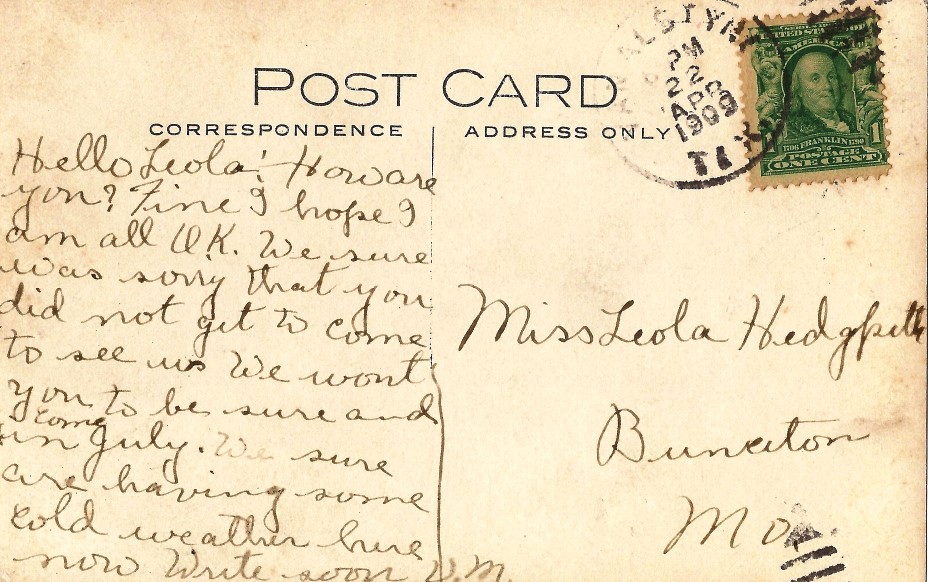 POST CARD
CORRESPONDENCE
ADDRESS ONLY
Hello Leola! How are
you? Fine I hope I
am all O.K. We sure
was sorry that you
did not get to come
to see us We wont
you to be sure and
come
in July. We sure
are having some
cold weather here
now Write soon V.M.
Miss Leola Hedgpeth
Bunceton
Mo
PM
22
APR
1909
TEX
SERIES OF 1902
UNITED STATES OF
AMERICA
1706 FRANKLIN 1790
POSTAGE
ONE CENT
1